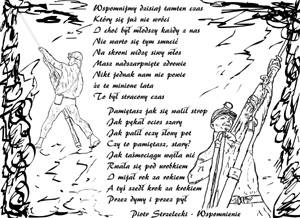 Wspomnijmy dzisiaj tamten czas
Który się już nie wróci
I choć był młodszy każdy z nas
Nie warto się tym smucić
Na skroni widzę siwy włos
Masz nadszarpnięte zdrowie
Nikt jednak nam nie powie
że te minione lata
To był stracony czas
Pamiętasz jak się walił strop
Jak pękał ocios szary
Jak palił oczy słony pot
Czy to pamiętasz, stary?
Jak taśmociągu wąska nić
Rwała się pod urobkiem
I mijał rok za rokiem
A tyś szedł krok za krokiem
Przez dymy i przez pył
Piotr Strzelecki - Wspomnienie